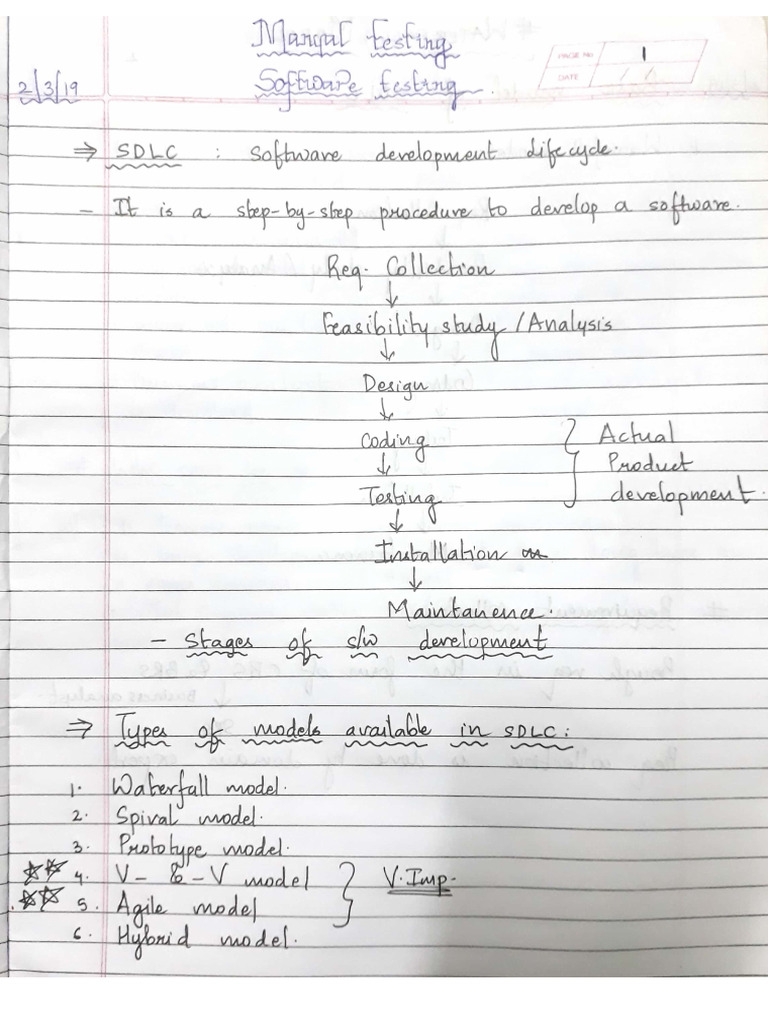 Manual testing
PAGE NO 1
DATE / /
2/3/19
Software testing.
⇒ SDLC : Software development lifecycle.
- It is a step-by-step procedure to develop a software.
Req. Collection
↓
Feasibility study / Analysis
↓
Design
↓
Coding } Actual
↓ Product
Testing development.
↓
Installation
↓
Maintanence.
- Stages of s/w development
⇒ Types of models available in SDLC:
1. Waterfall model.
2. Spiral model.
3. Prototype model.
☆☆ 4. V- & -V model } V. Imp.
☆☆ 5. Agile model
6. Hybrid model.